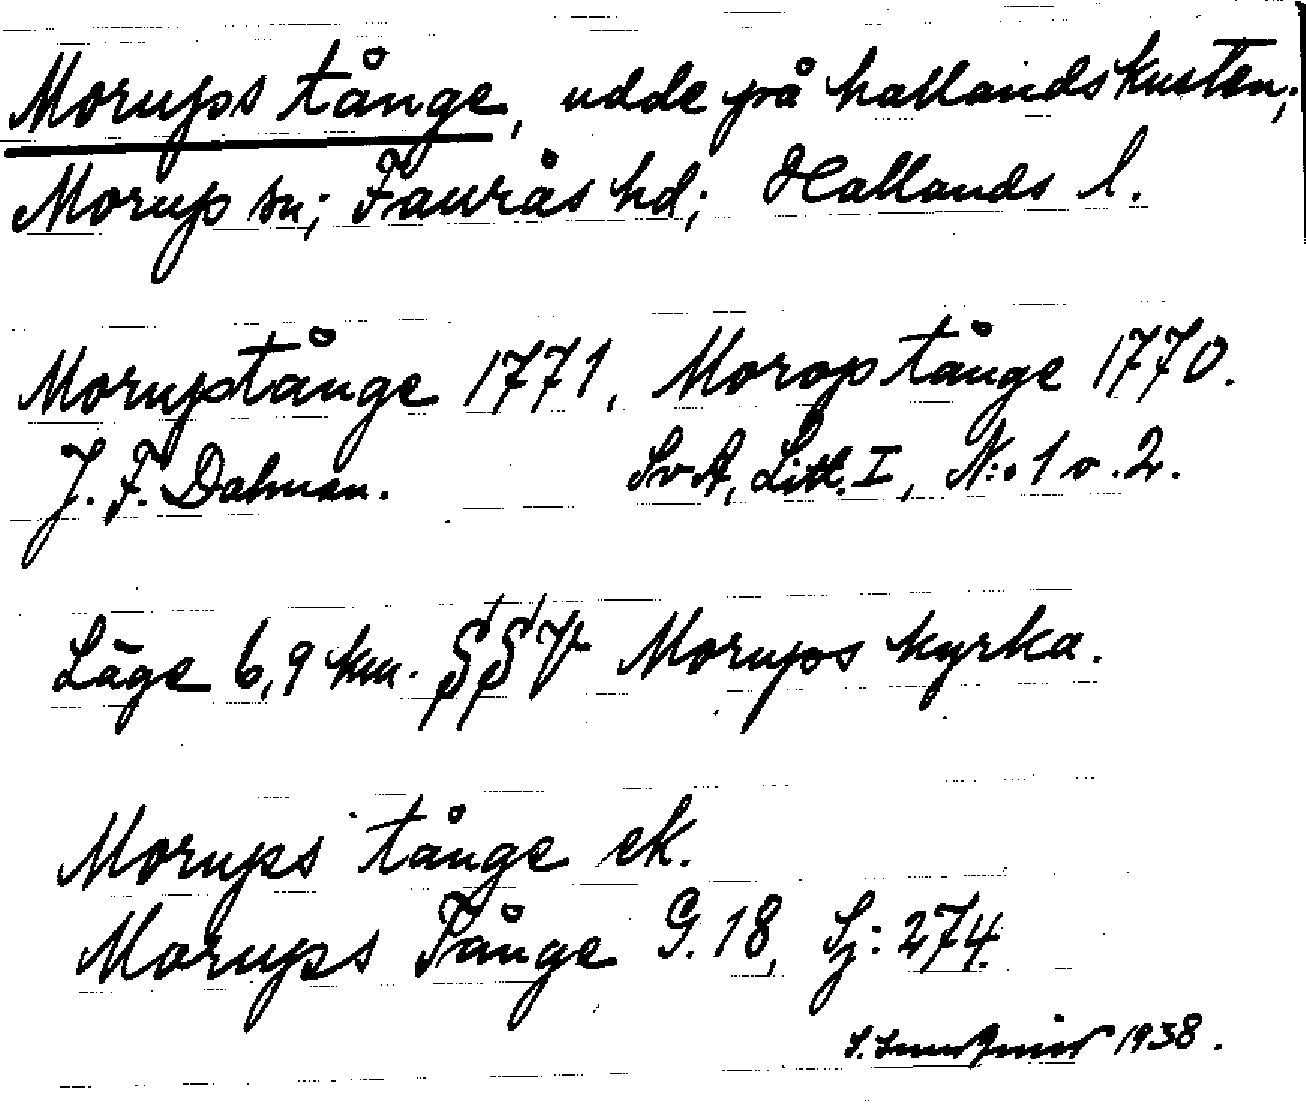 Morups tånge, udde på hallandskusten;
Morup sn; Faurås hd; Hallands l.
Moruptånge 1771, Morop tånge 1770.
J. F. Dalman. SvA, Litt. I, N:o 1 o. 2.
Läge 6,9 km. SSV Morups kyrka.
Morups tånge ek.
Morups Tånge G. 18, Sj: 274.
1938.